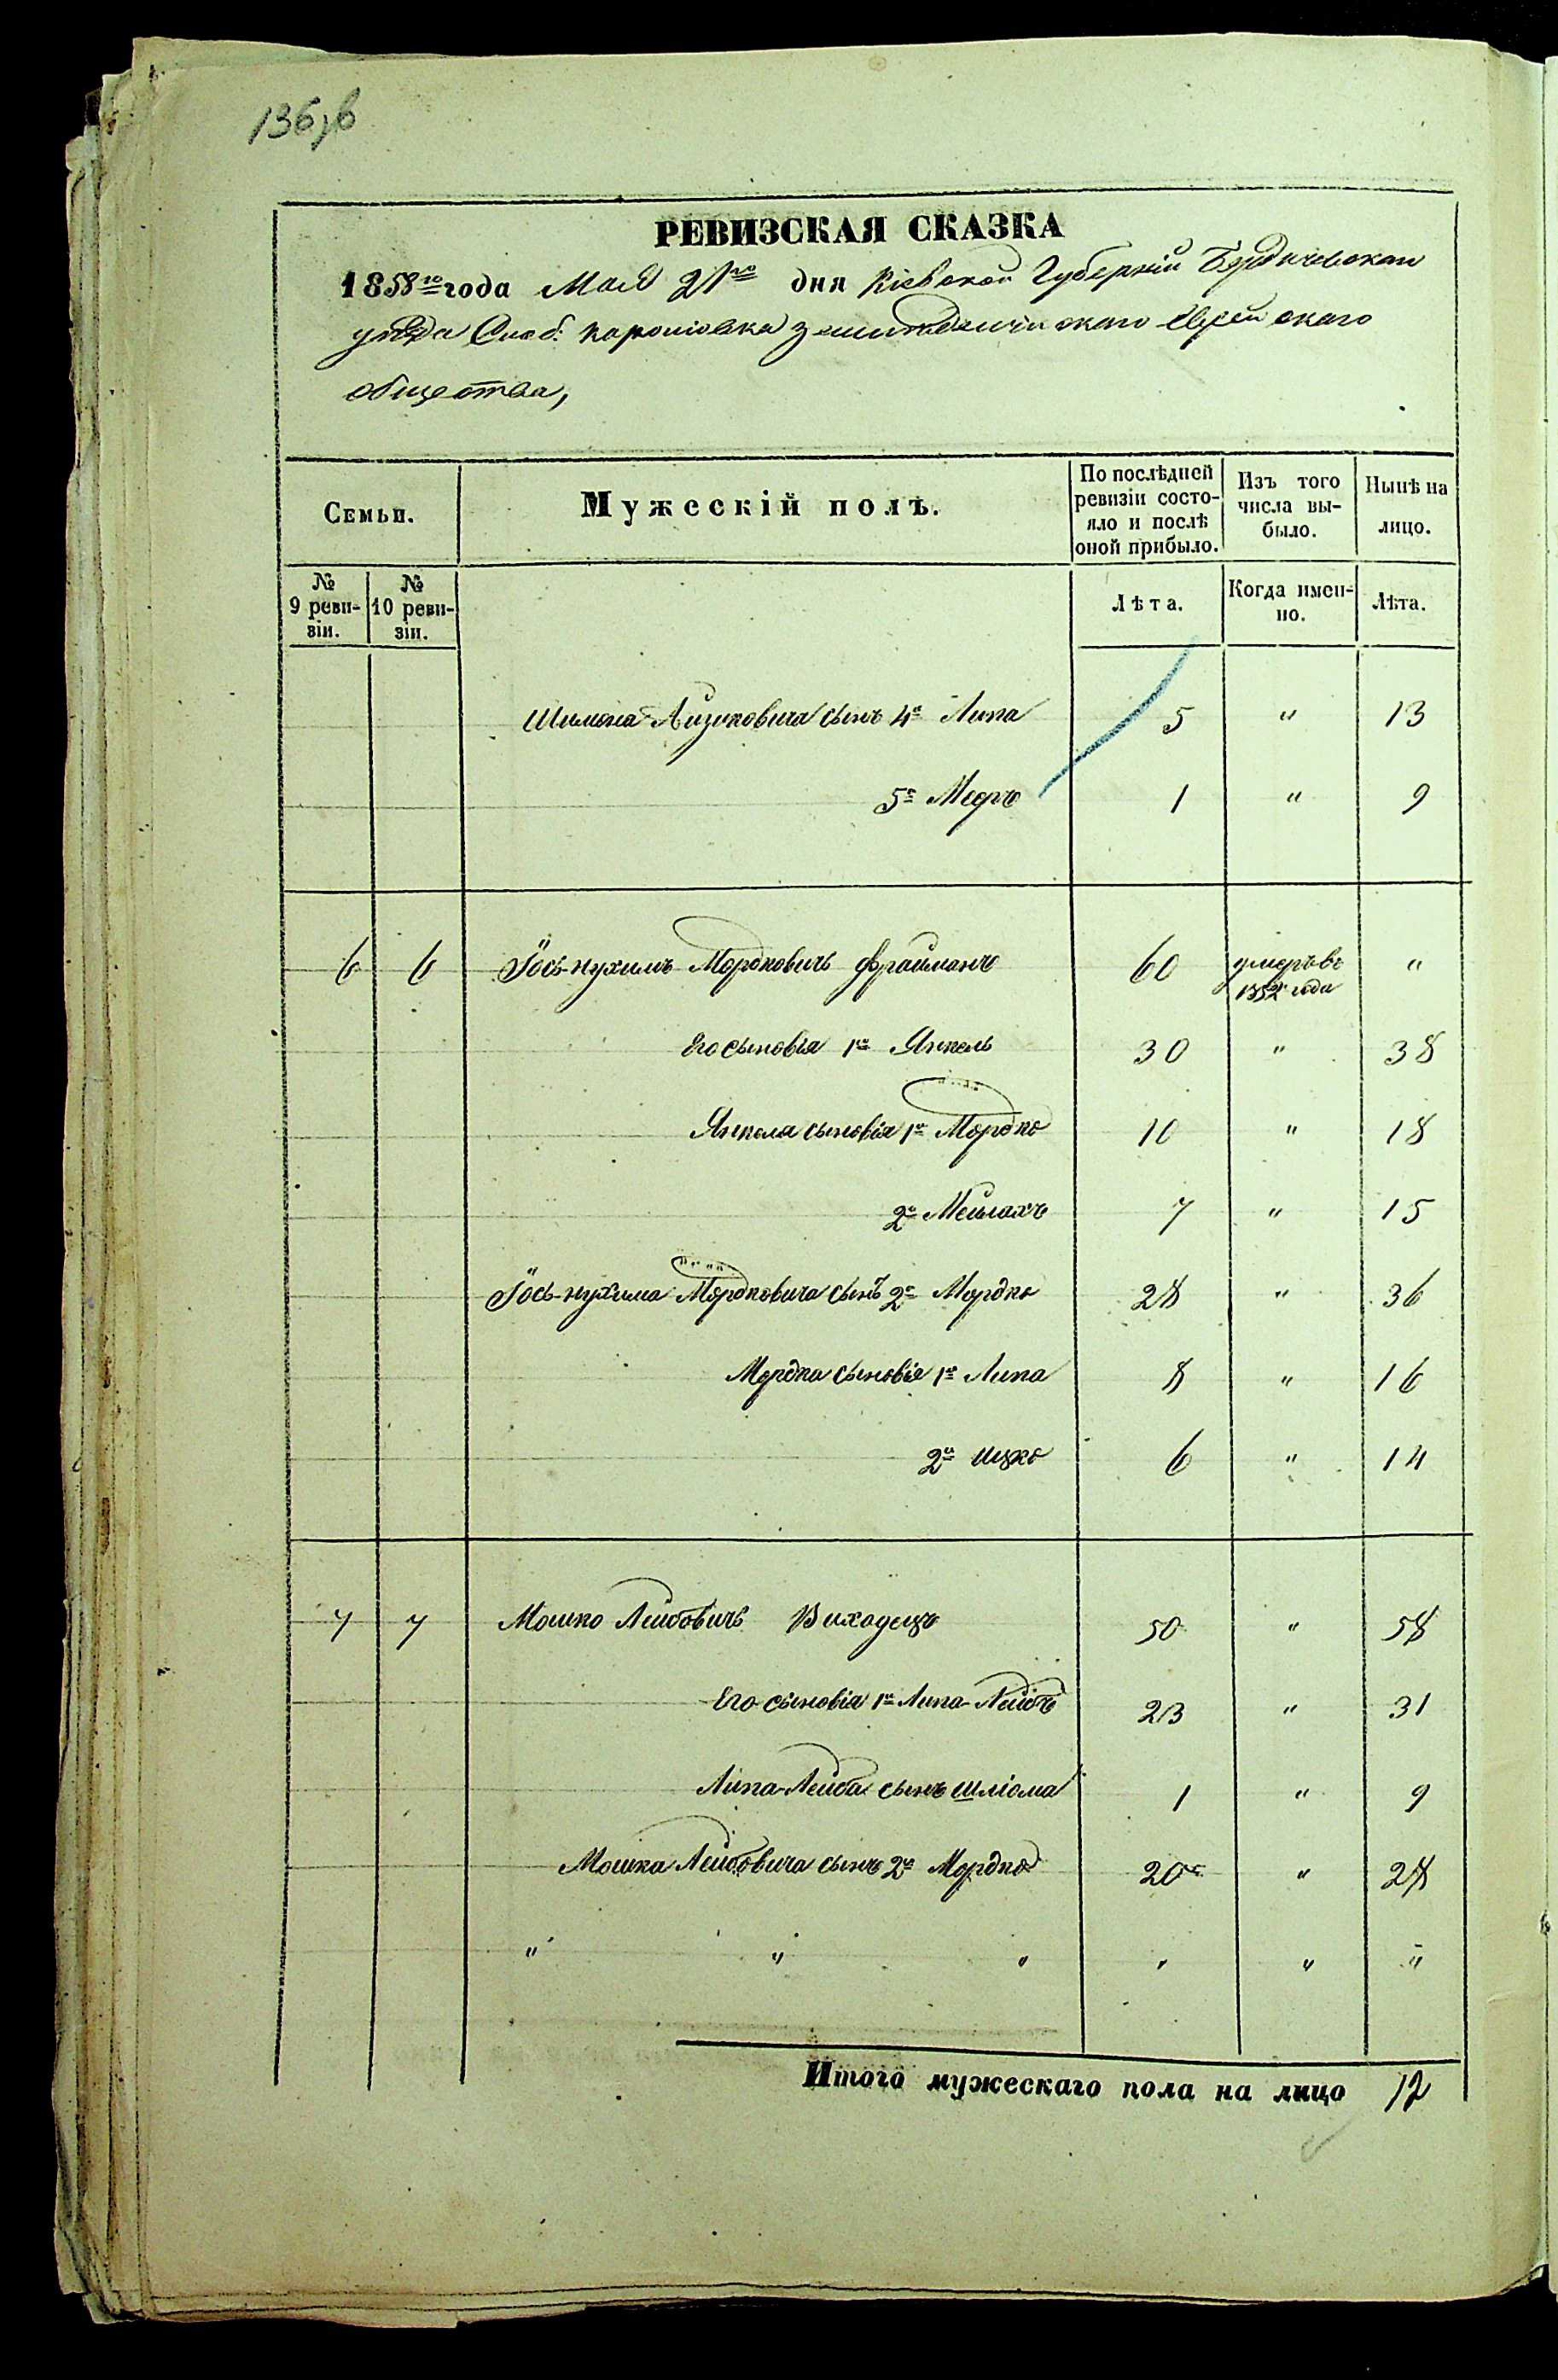 136 об
РЕВИЗСКАЯ СКАЗКА
1858го года Мая 21го дня Кіевской Губерніи Бердичевскаго
уѣзда Слоб. еврейскаго
общества,
Семьи.
Мужескій полъ.
По послѣдней ревизіи состояло и послѣ оной прибыло.
Изъ того числа выбыло.
Нынѣ на лицо.
№ 9 ревизіи.
№ 10 ревизіи.
Лѣта.
Когда именно.
Лѣта.
Шимона Айзиковича сынъ 4й Липа 5 " 13
5й Мееръ 1 " 9
6 6 Іось-нухимъ Мордковичъ Фрайманъ 60 умеръ въ 1852 года "
Его сыновія 1й Янкель 30 " 38
Янкеля сыновія 1й Мордко 10 " 18
2й Мейлахъ 7 " 15
Іось-нухима Мордковича сынъ 2й Мордко 28 " 36
Мордка сыновія 1й Липа 8 " 16
2й Ицко 6 " 14
7 7 Мошко Лейбовичъ Виходецъ 50 " 58
Его сыновія 1й Липа-Лейбъ 23 " 31
Липа-Лейба сынъ Шліома 1 " 9
Мошка Лейбовича сынъ 2й Мордко 20 " 28
" " " " " "
Итого мужескаго пола на лицо 12